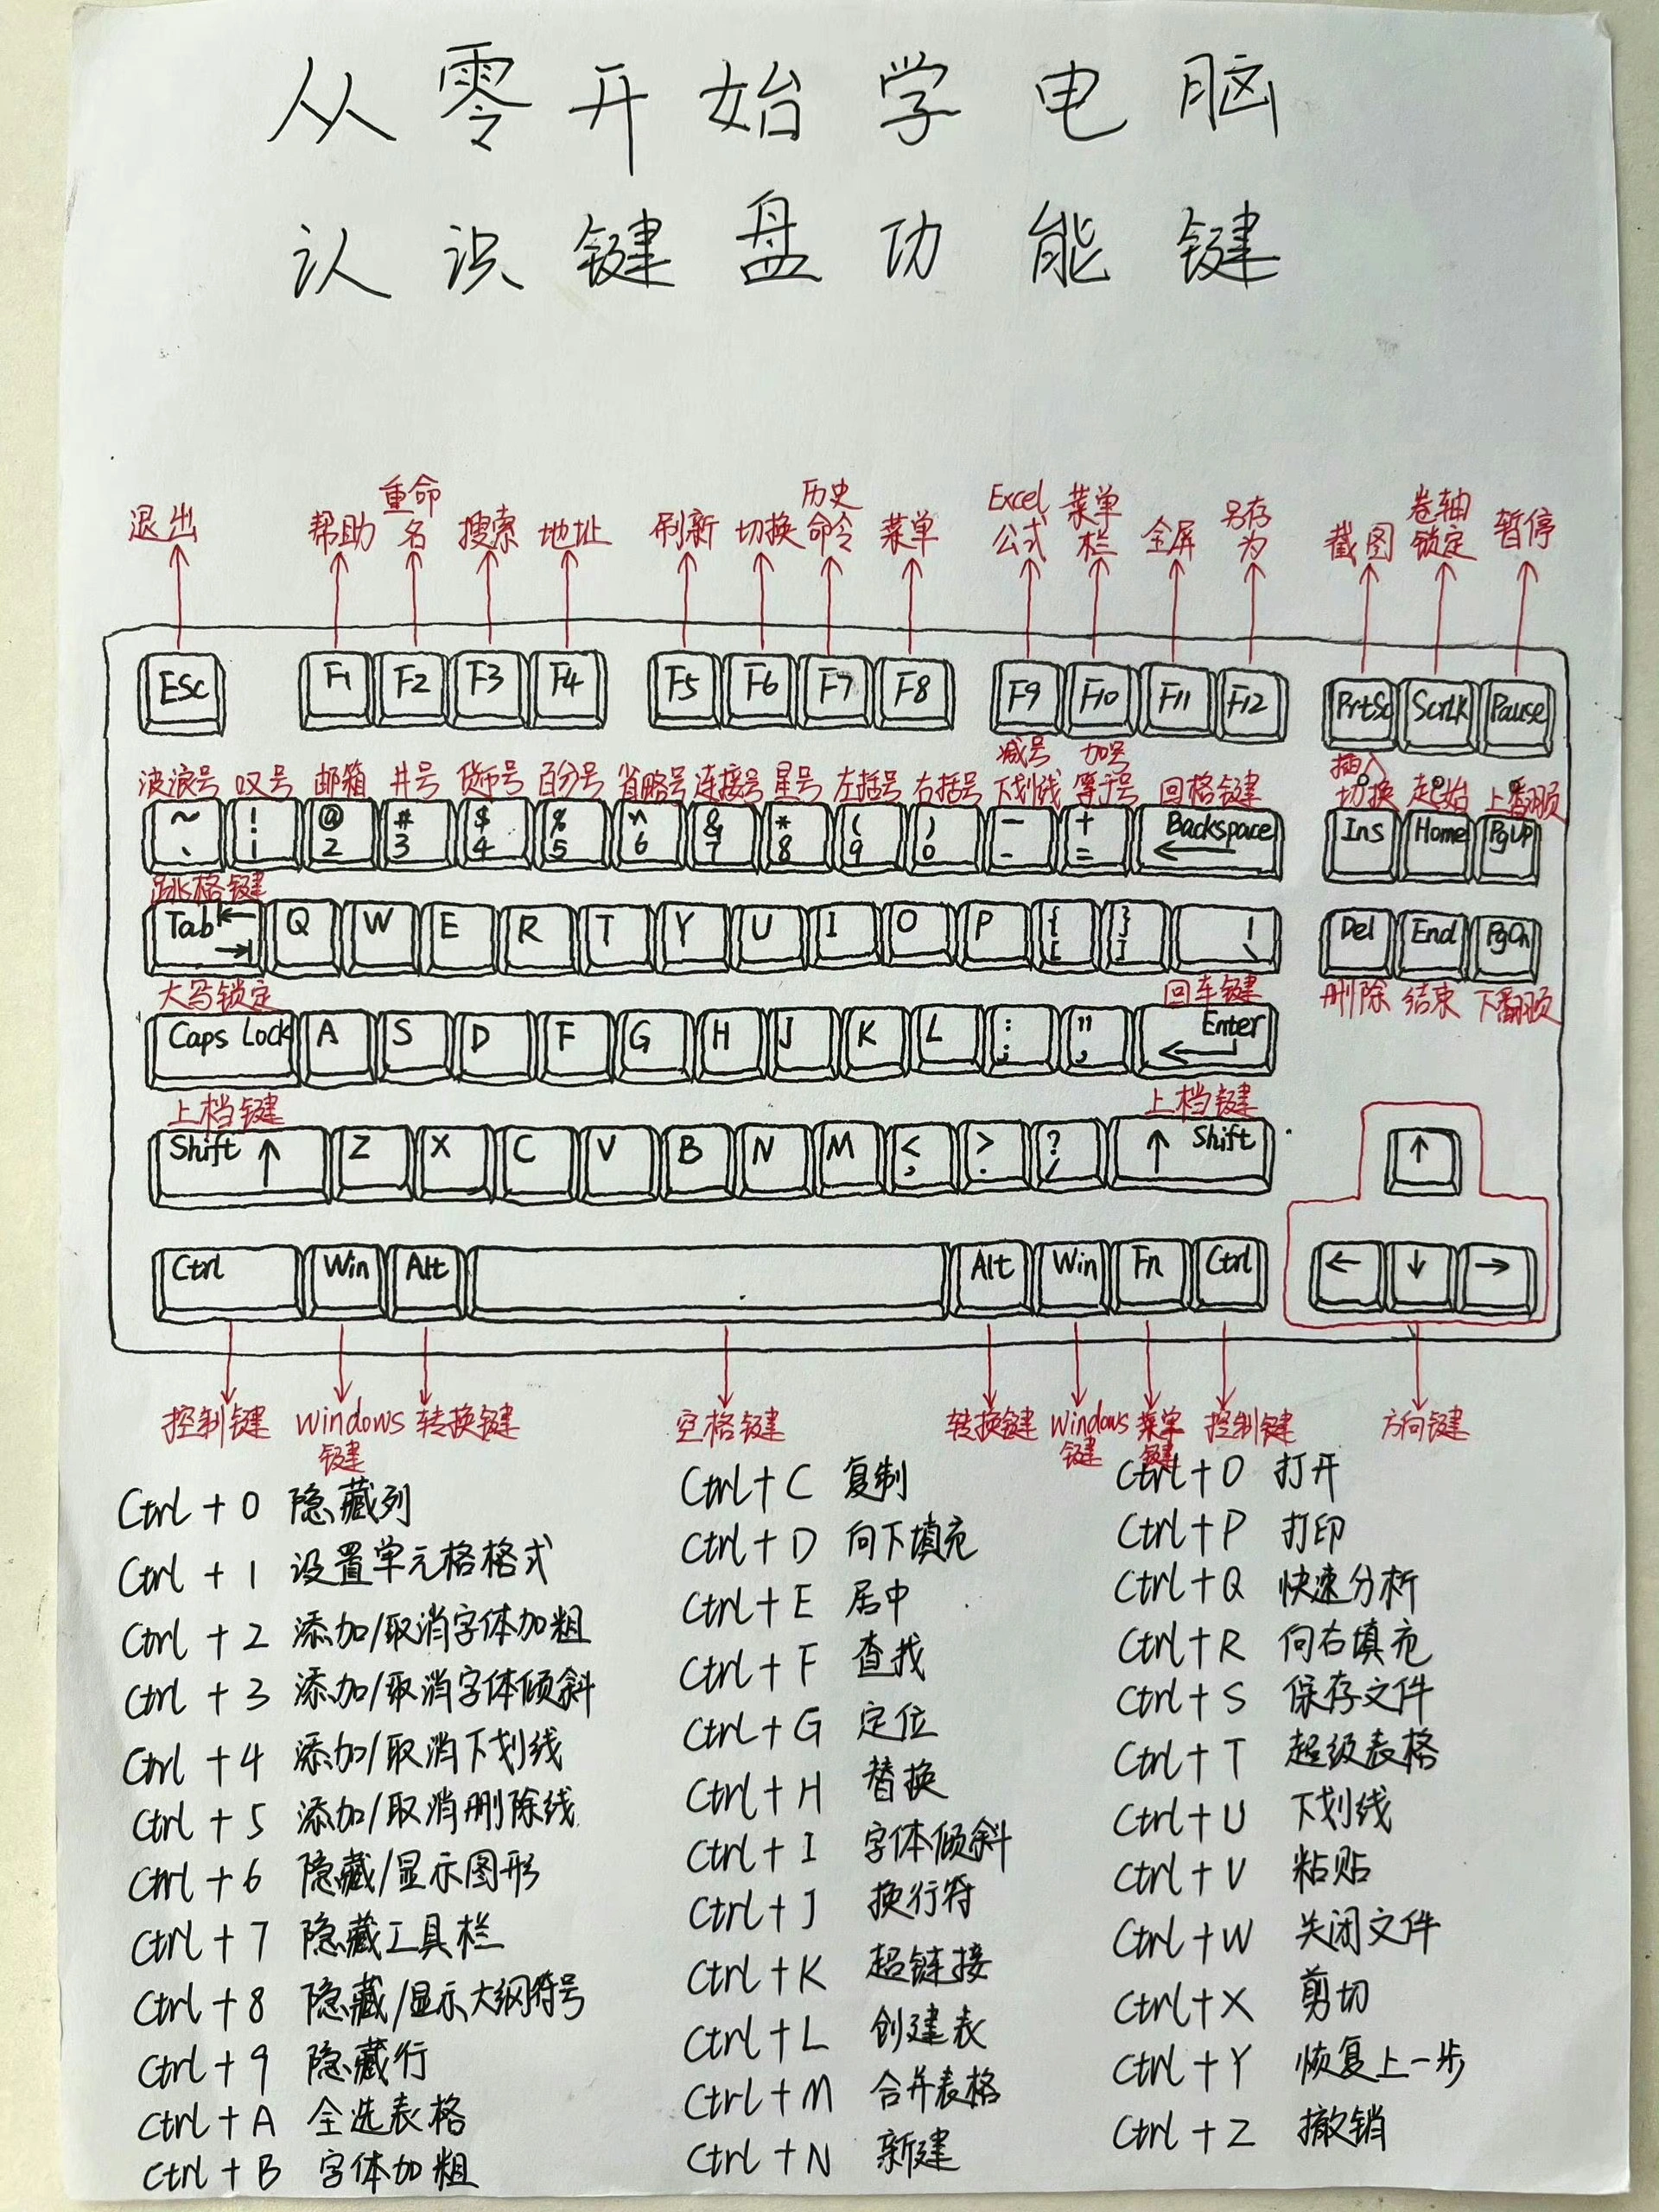 从零开始学电脑
认识键盘功能键
退出 帮助 重命名 搜索 地址 刷新 切换 历史命令 菜单 Excel公式 菜单栏 全屏 另存为 截图 卷轴锁定 暂停
Esc F1 F2 F3 F4 F5 F6 F7 F8 F9 F10 F11 F12 PrtSc ScrLK Pause
波浪号 叹号 邮箱 井号 货币号 百分号 省略号 连接号 星号 左括号 右括号 减号下划线 加号等于号 回格键 插入切换 起始 上翻页
~ ! @ # $ % ^ & * ( ) — + Backspace Ins Home PgUp
、 1 2 3 4 5 6 7 8 9 0 - = ←
跳格键
Tab Q W E R T Y U I O P { } | Del End PgDn
[ ] \
大写锁定 回车键 删除 结束 下翻页
Caps Lock A S D F G H J K L : " Enter
; , ←
上档键 上档键
Shift ↑ Z X C V B N M < > ? ↑ Shift ↑
, . /
Ctrl Win Alt Alt Win Fn Ctrl ← ↓ →
控制键 windows键 转换键 空格键 转换键 windows键 菜单键 控制键 方向键
Ctrl + 0 隐藏列
Ctrl + 1 设置单元格格式
Ctrl + 2 添加/取消字体加粗
Ctrl + 3 添加/取消字体倾斜
Ctrl + 4 添加/取消下划线
Ctrl + 5 添加/取消删除线
Ctrl + 6 隐藏/显示图形
Ctrl + 7 隐藏工具栏
Ctrl + 8 隐藏/显示大纲符号
Ctrl + 9 隐藏行
Ctrl + A 全选表格
Ctrl + B 字体加粗
Ctrl + C 复制
Ctrl + D 向下填充
Ctrl + E 居中
Ctrl + F 查找
Ctrl + G 定位
Ctrl + H 替换
Ctrl + I 字体倾斜
Ctrl + J 换行符
Ctrl + K 超链接
Ctrl + L 创建表
Ctrl + M 合并表格
Ctrl + N 新建
Ctrl + O 打开
Ctrl + P 打印
Ctrl + Q 快速分析
Ctrl + R 向右填充
Ctrl + S 保存文件
Ctrl + T 超级表格
Ctrl + U 下划线
Ctrl + V 粘贴
Ctrl + W 关闭文件
Ctrl + X 剪切
Ctrl + Y 恢复上一步
Ctrl + Z 撤销